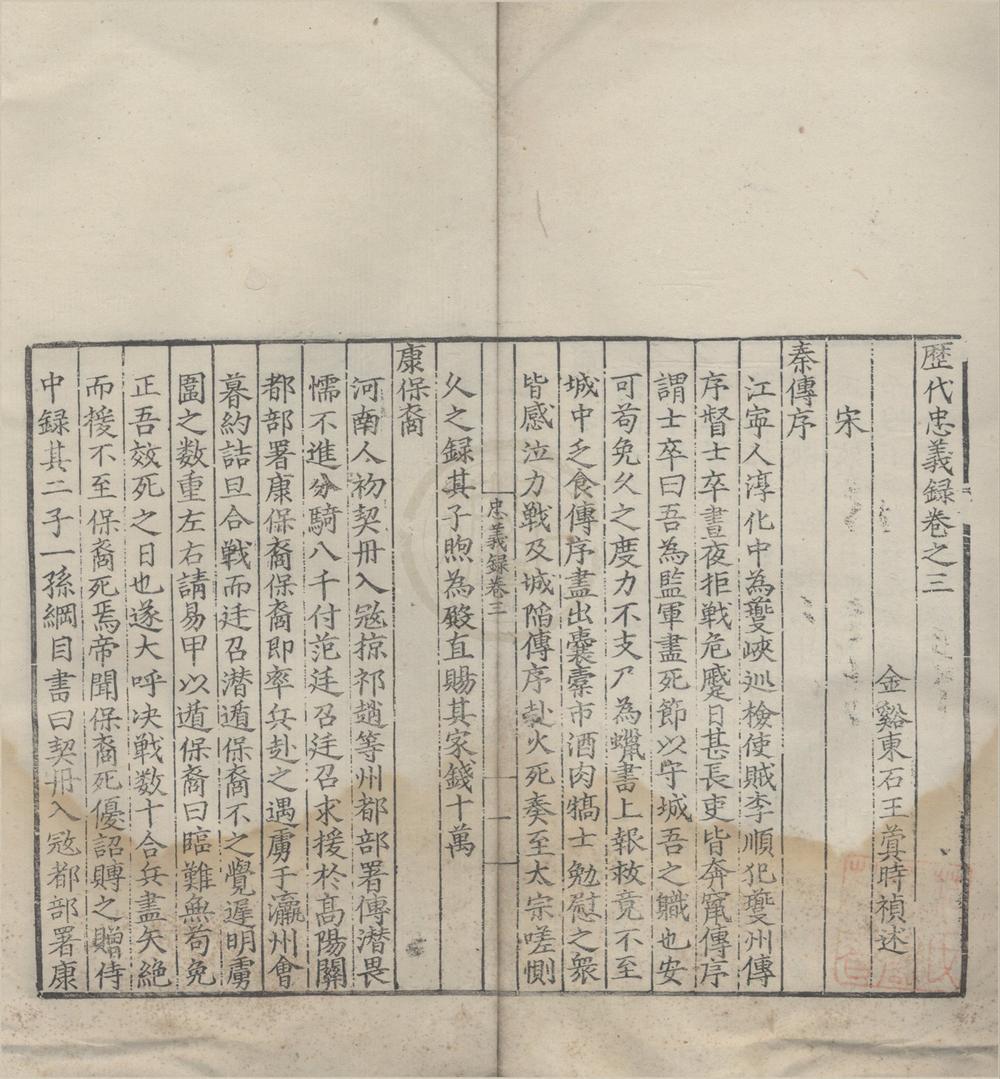 歷代忠義錄卷之三
金谿東石王蓂時禎述
宋
秦傳序
江寜人淳化中為夔峽廵檢使賊李順犯夔州傳
序督士卒晝夜拒戰危蹙日甚長吏皆奔竄傳序
謂士卒曰吾為監軍盡死節以守城吾之職也安
可苟免久之度力不支乃為蠟書上報救竟不至
城中乏食傳序盡出囊橐市酒肉犒士勉慰之衆
皆感泣力戰及城陷傳序赴火死奏至太宗嗟惻
忠義録卷三
一
久之録其子煦為殿直賜其家錢十萬
康保裔
河南人初契丹入冦掠祁趙等州都部署傳潜畏
懦不進分騎八千付范廷召廷召求援於髙陽關
都部署康保裔保裔即率兵赴之遇虜于瀛州會
暮約詰旦合戰而廷召潜遁保裔不之覺遲明虜
圍之数重左右請易甲以遁保裔曰臨難無苟免
正吾效死之日也遂大呼决戰数十合兵盡矢絶
而援不至保裔死焉帝聞保裔死優詔賻之贈侍
中録其二子一孫綱目書曰契丹入冦都部署康